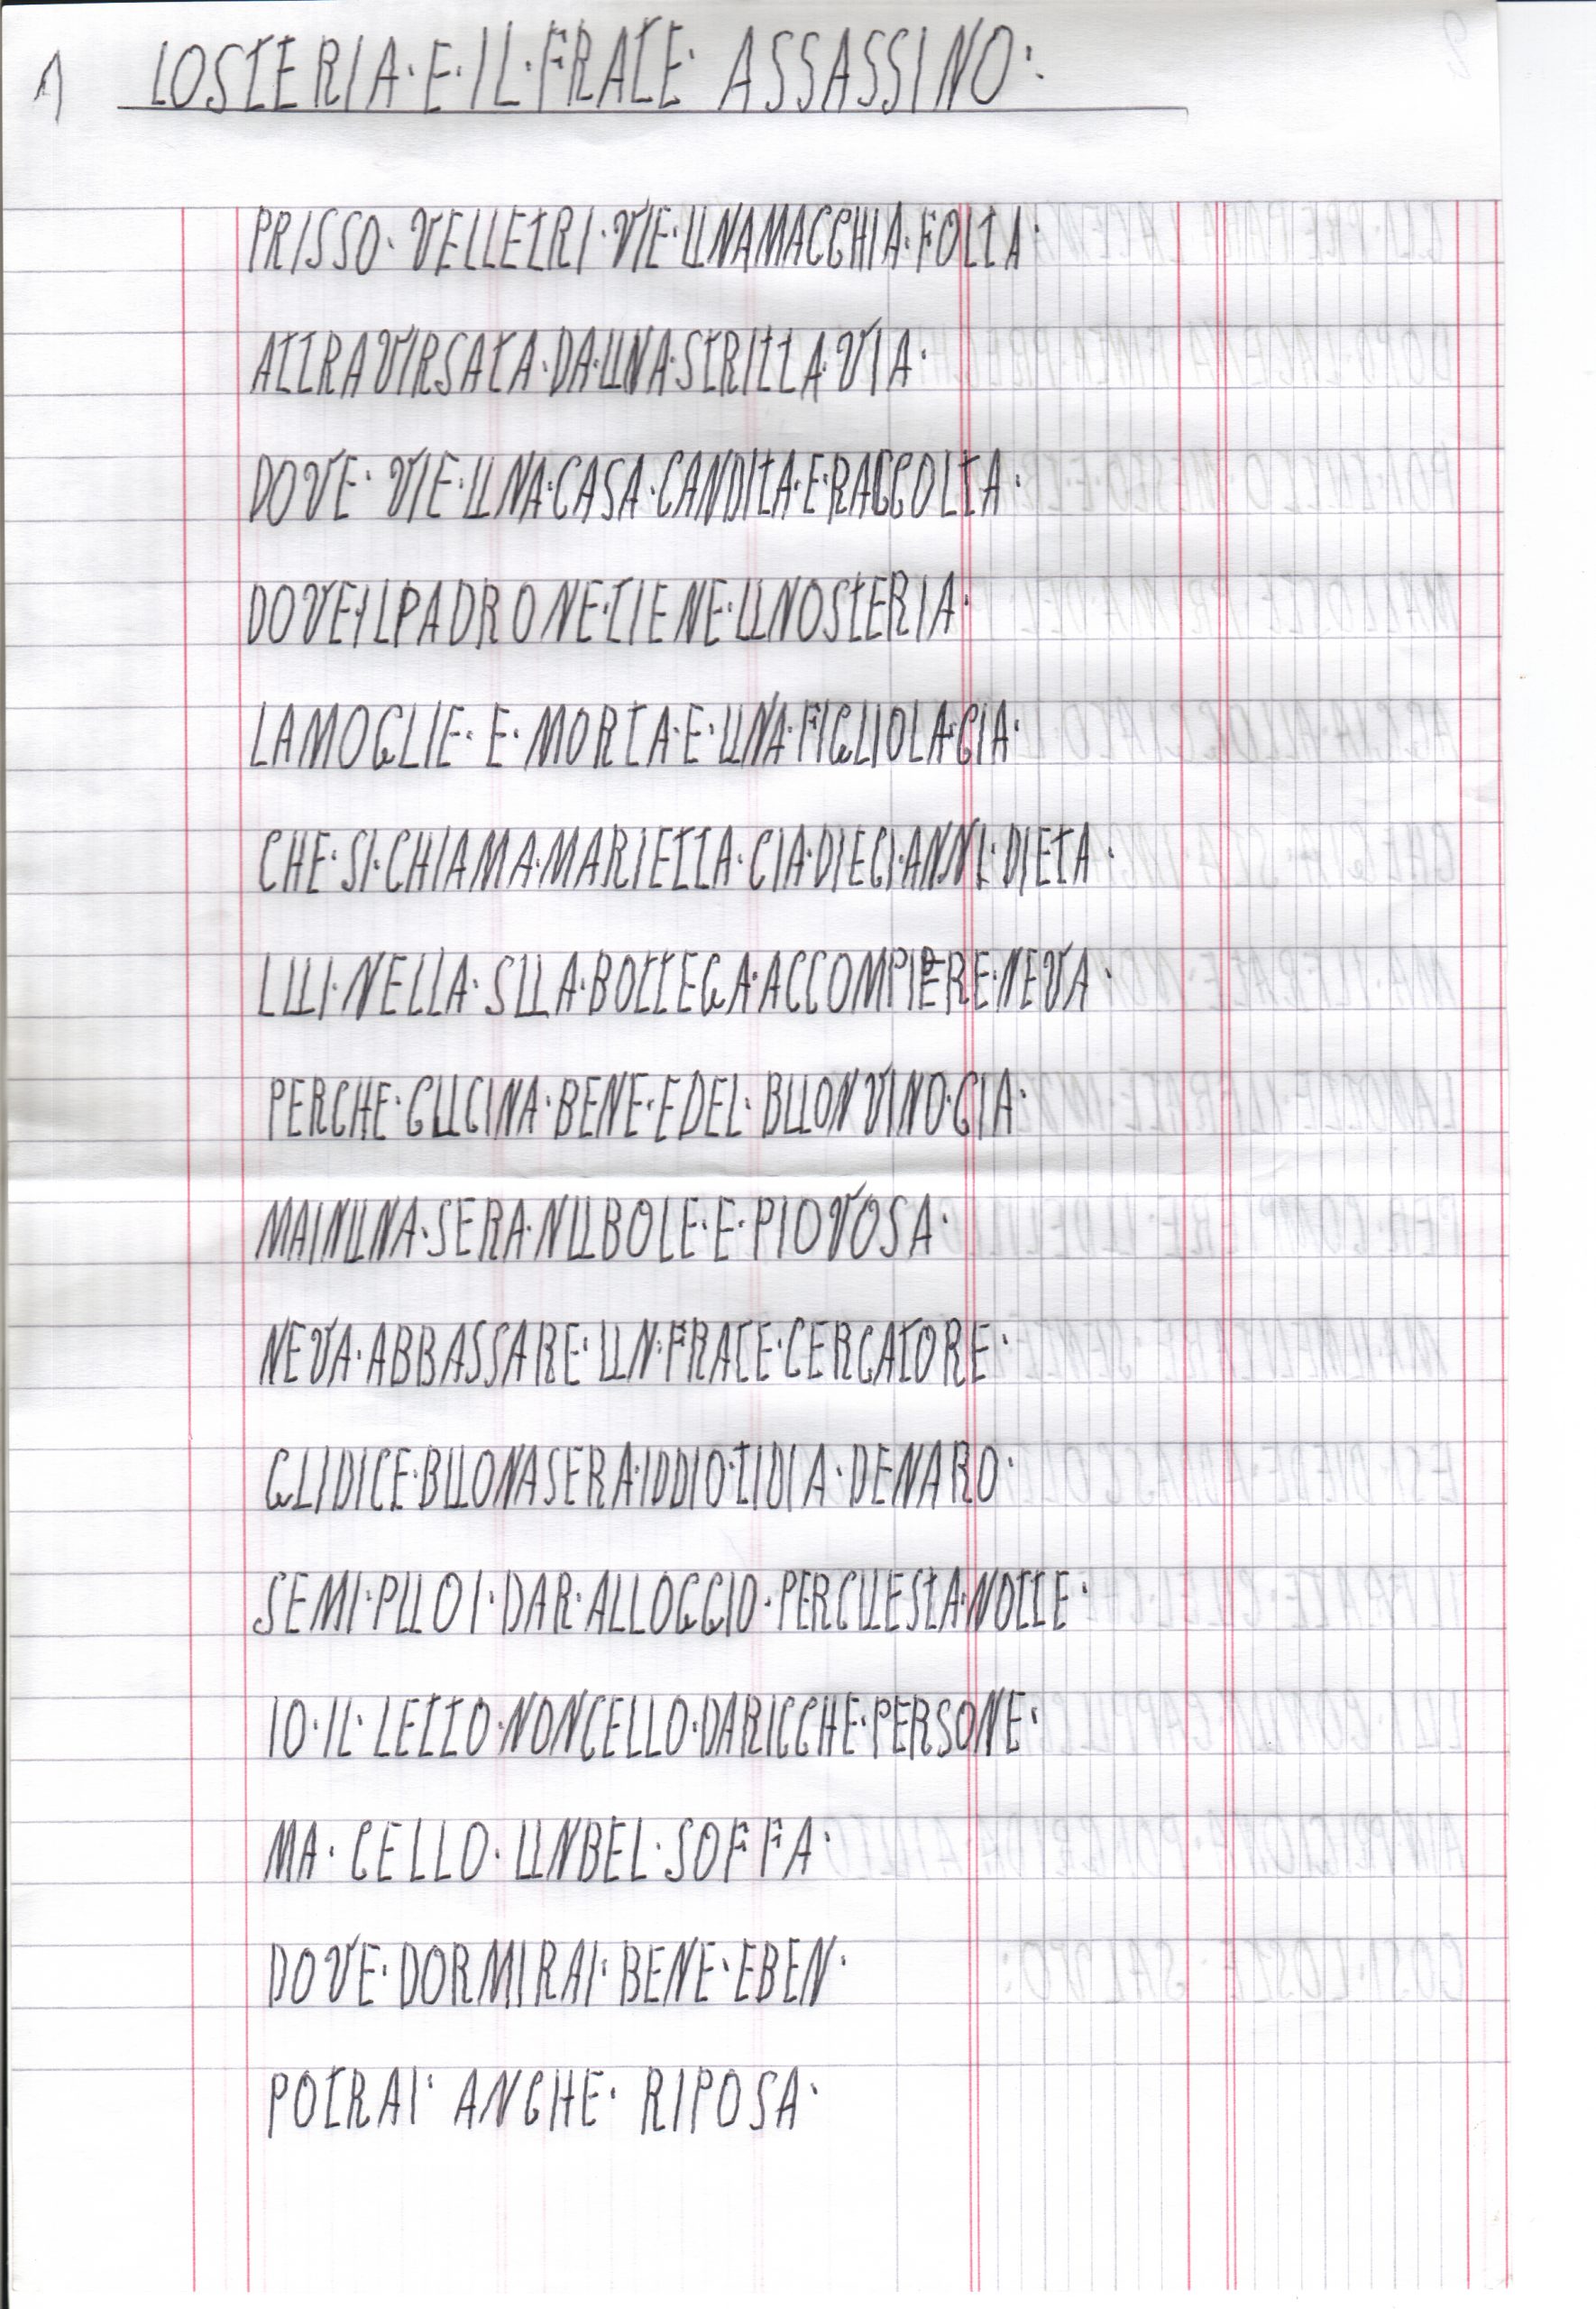 1 LOSTERIA·E·IL·FRATE· ASSASSINO:
PRISSO· VELLETRI·VIE·UNAMACCHIA·FOLTA·
ATTRAVIRSATA·DA·UNA·STRITTA·VIA·
DOVE· VIE·UNA·CASA·CANDITA·E·RACCOLTA·
DOVE·ILPADRONE·TIENE·UNOSTERIA·
LAMOGLIE· E· MORTA·E·UNA·FIGLIOLA·CIA·
CHE·SI·CHIAMA·MARIETTA·CIA·DIECI·ANNI·DIETA·
LUI·NELLA·SUA·BOTTEGA·ACCOMPIERE·NEVA·
PERCHE·CUCINA·BENE·EDEL·BUONVINO·CIA·
MAINUNA·SERA·NUBOLE·E·PIOVOSA·
NEVA·ABBASSARE·UN·FRATE·CERCATORE·
GLIDICE·BUONASERA·IDDIO·TIDIA·DENARO·
SEMI·PUOI·DAR·ALLOGGIO·PERCUESTA·NOTTE·
IO·IL·LETTO·NONCELLO·DARICCHE·PERSONE·
MA·CELLO·UNBEL·SOFFA·
DOVE·DORMIRAI·BENE·EBEN·
POTRAI· ANCHE· RIPOSA·